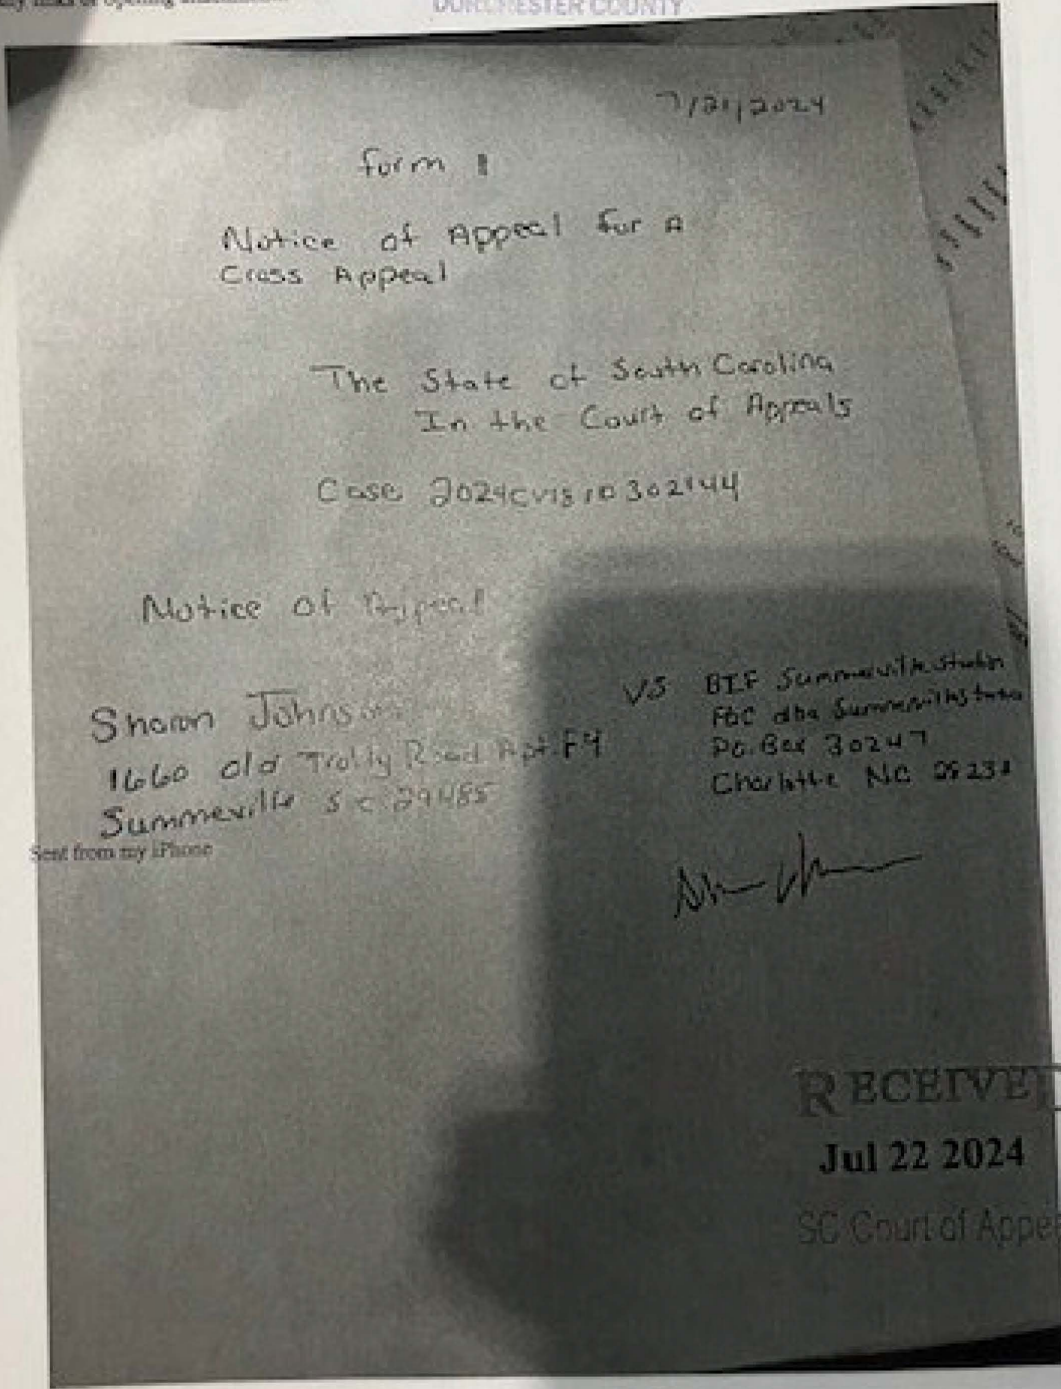 DORCHESTER COUNTY
7/21/2024
form 1
Notice of Appeal for A
Cross Appeal
The State of South Carolina
In the Court of Appeals
Case 2024CV1810302144
Notice of Appeal
Sharon Johnson
1660 old Trolly Road Apt. F4
Summeville SC 29485
VS BIF Summerville
dba
P.O. Box 30247
Charlotte NC
Sent from my iPhone
RECEIVED
Jul 22 2024
SC Court of Appe